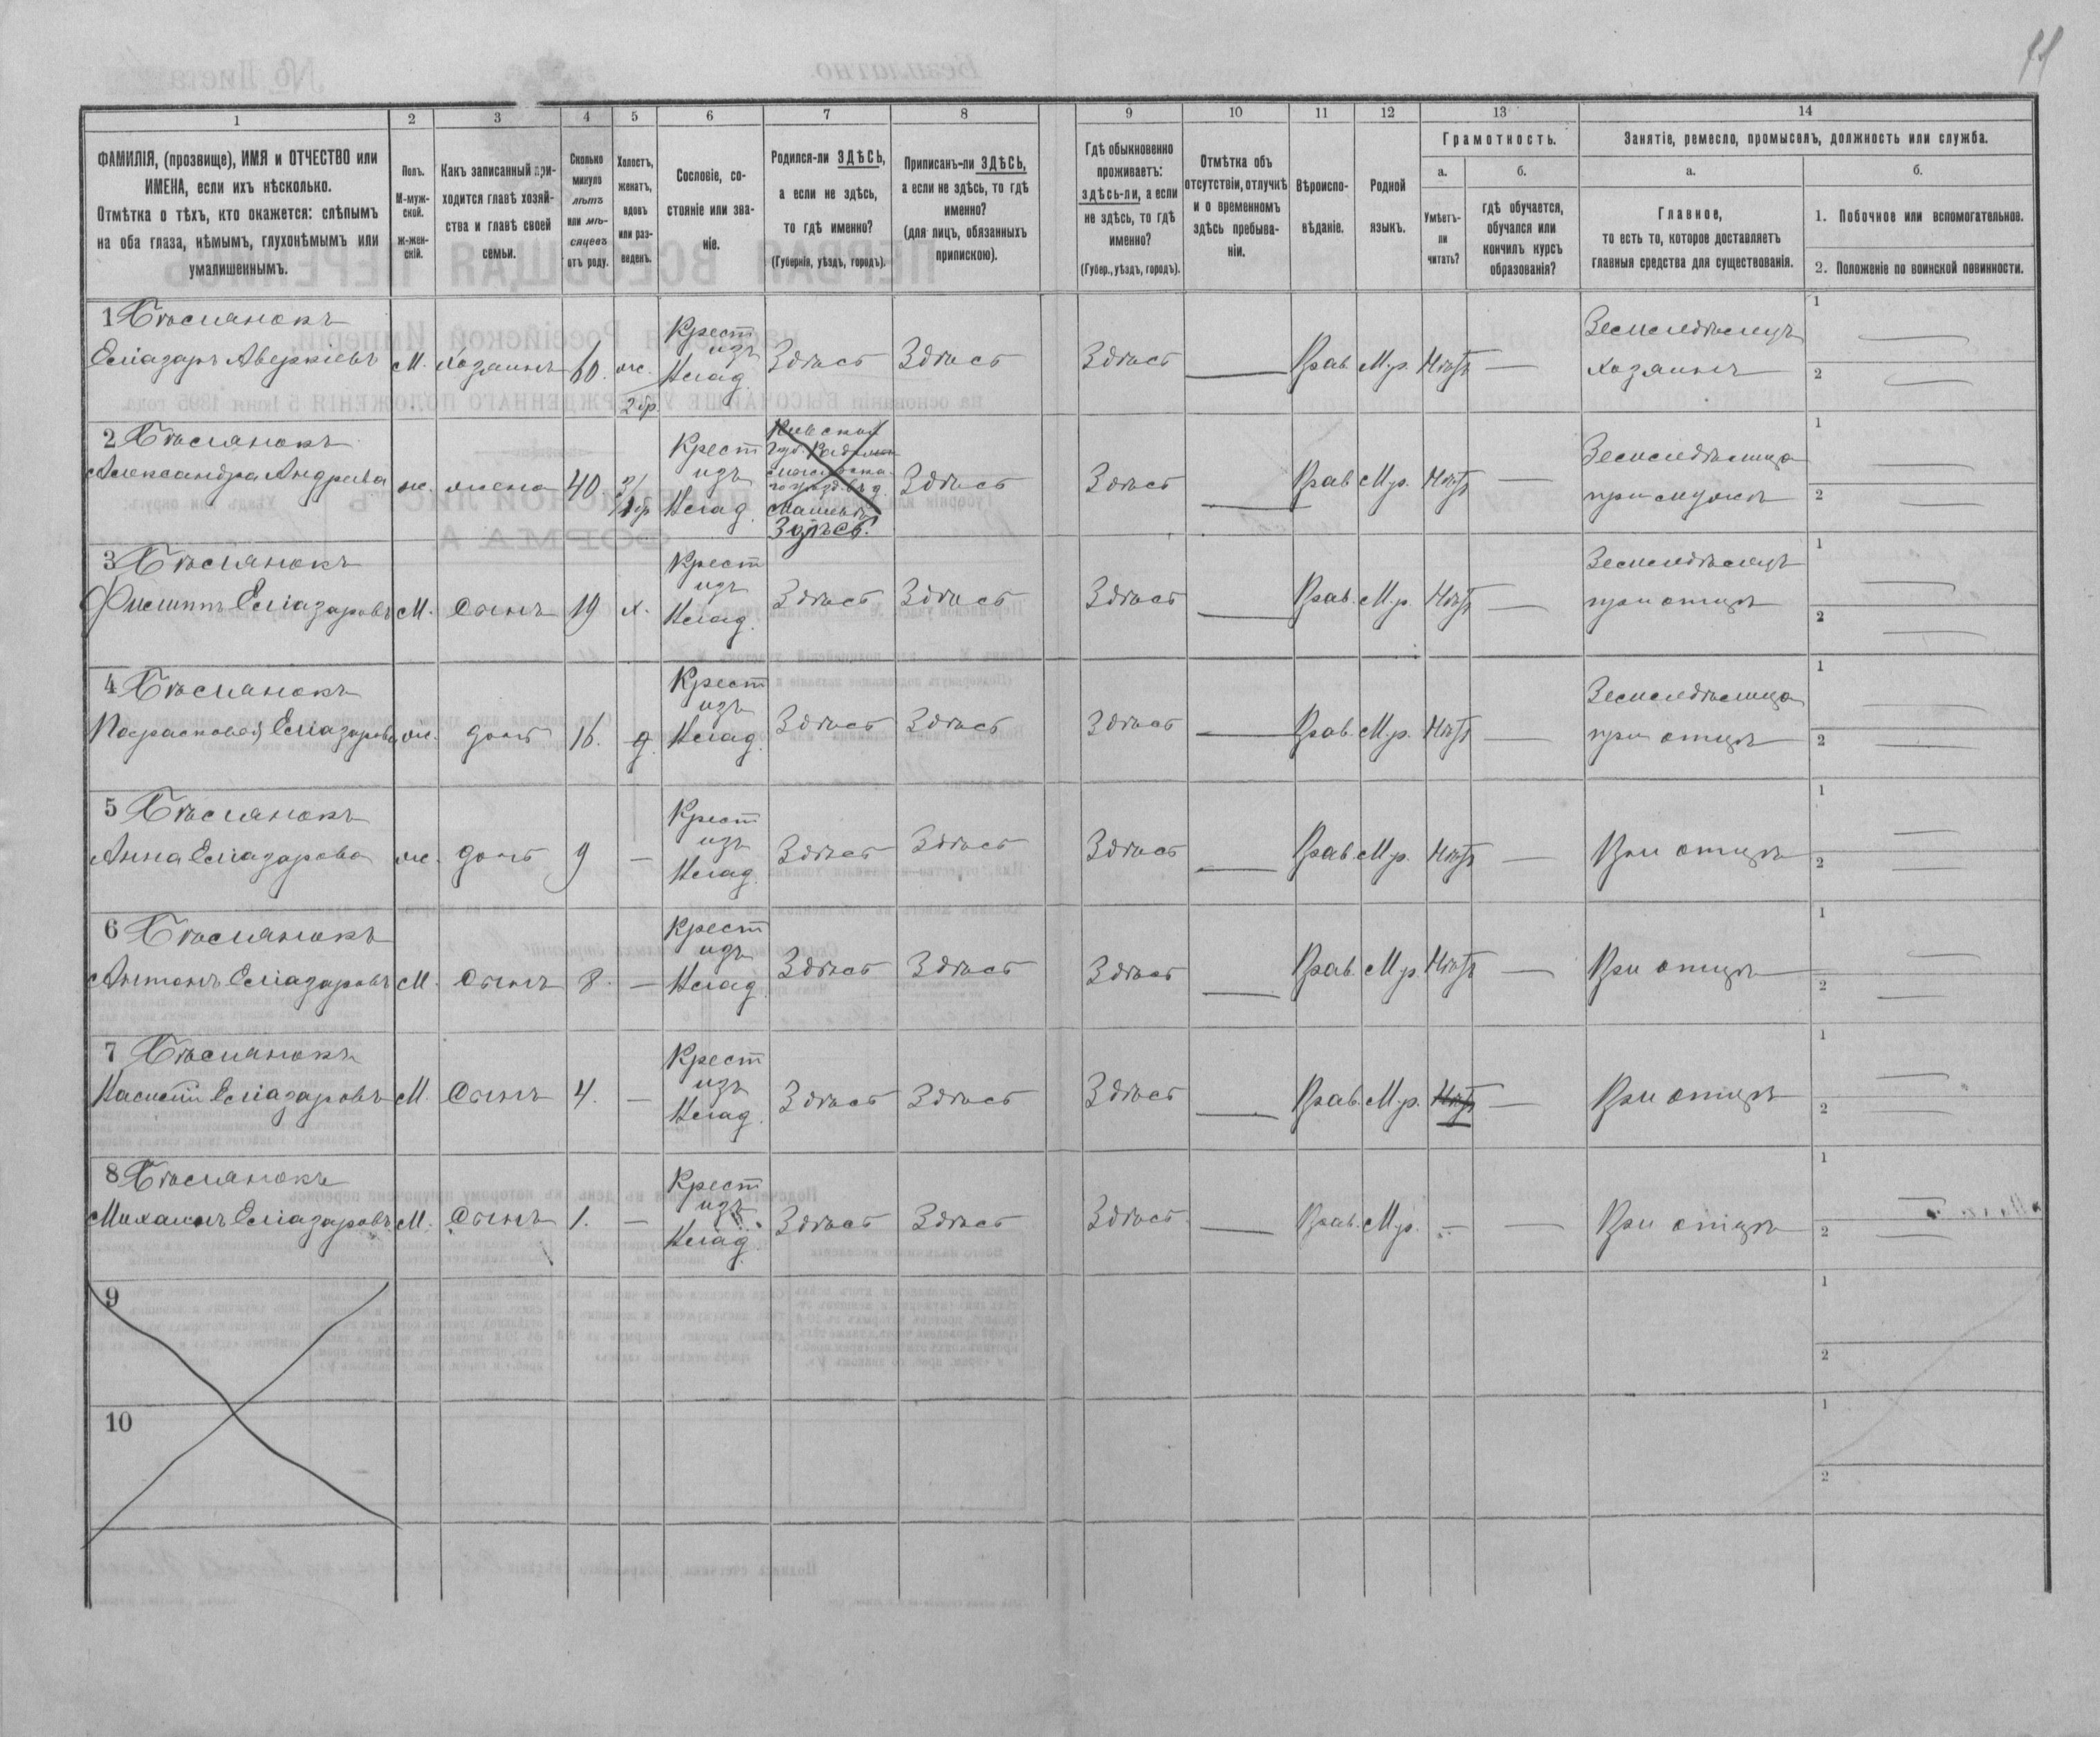 11
1 2 3 4 5 6 7 8 9 10 11 12 13 14
ФАМИЛІЯ, (прозвище), ИМЯ и ОТЧЕСТВО или
ИМЕНА, если ихъ нѣсколько.
Отмѣтка о тѣхъ, кто окажется: слѣпымъ
на оба глаза, нѣмымъ, глухонѣмымъ или
умалишеннымъ.
Полъ.
М-муж-
ской.
ж-жен-
скій.
Какъ записанный при-
ходится главѣ хозяй-
ства и главѣ своей
семьи.
Сколько
минуло
лѣтъ
или мѣ-
сяцевъ
отъ роду.
Холостъ,
женатъ,
вдовъ
или раз-
веденъ.
Сословіе, со-
стояніе или зва-
ніе.
Родился-ли ЗДѢСЬ,
а если не здѣсь,
то гдѣ именно?
(Губернія, уѣздъ, городъ).
Приписанъ-ли ЗДѢСЬ,
а если не здѣсь, то гдѣ
именно?
(для лицъ, обязанныхъ
припискою).
Гдѣ обыкновенно
проживаетъ:
здѣсь-ли, а если
не здѣсь, то гдѣ
именно?
(Губер., уѣздъ, городъ).
Отмѣтка объ
отсутствіи, отлучкѣ
и о временномъ
здѣсь пребыва-
ніи.
Вѣроиспо-
вѣданіе.
Родной
языкъ.
Грамотность.
а.
Умѣетъ-
ли
читать?
б.
гдѣ обучается,
обучался или
кончилъ курсъ
образованія?
Занятіе, ремесло, промыселъ, должность или служба.
а.
Главное,
то есть то, которое доставляетъ
главныя средства для существованія.
б.
1. Побочное или вспомогательное.
2. Положеніе по воинской повинности.
1
Еліазаръ Аверкіевъ М. хозяинъ 60. ж. 2 бр Крест изъ Влад. Здѣсь Здѣсь Здѣсь — Прав М.р. Нѣтъ — Земледѣлецъ хозяинъ 1 — 2 —
2
Александра Андреева ж. жена 40 Крест изъ Влад. Здѣсь. Здѣсь Здѣсь — Прав М.р. Нѣтъ — Земледѣлица при мужѣ 1 — 2 —
3
Филиппъ Еліазаровъ М. Сынъ 19 х. Крест изъ Влад. Здѣсь Здѣсь Здѣсь — Прав. М.р. Нѣтъ — Земледѣлецъ при отцѣ 1 — 2 —
4
Парасковея Еліазарова ж. дочь 16. д. Крест изъ Влад. Здѣсь Здѣсь Здѣсь — Прав. М.р. Нѣтъ — Земледѣлица при отцѣ 1 — 2 —
5
Анна Еліазарова ж. дочь 9 — Крест изъ Влад. Здѣсь Здѣсь Здѣсь — Прав. М.р. Нѣтъ — При отцѣ 1 — 2 —
6
Антонъ Еліазаровъ М. Сынъ 8. — Крест изъ Влад. Здѣсь Здѣсь Здѣсь — Прав. М.р. Нѣтъ — При отцѣ 1 — 2 —
7
Еліазаровъ М. Сынъ 4. — Крест изъ Влад. Здѣсь Здѣсь Здѣсь — Прав. М.р. Нѣтъ — При отцѣ 1 — 2 —
8
Михаилъ Еліазаровъ М. Сынъ 1. — Крест изъ Влад. Здѣсь Здѣсь Здѣсь — Прав. М.р. — — При отцѣ 1 — 2 —
9 1 2
10 1 2